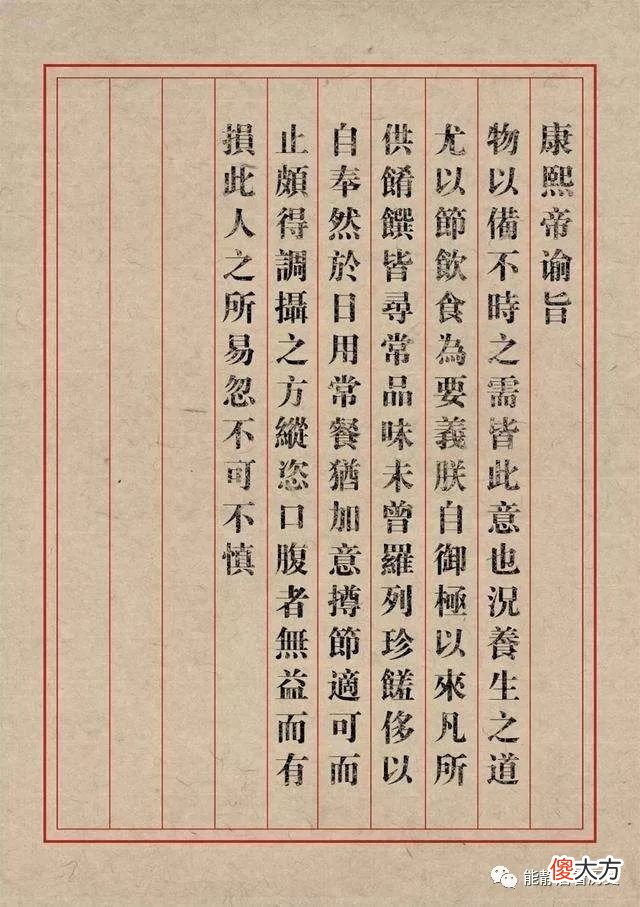 康熙帝谕旨
物以備不時之需皆此意也況養生之道
尤以節飲食為要義朕自御極以來凡所
供餚饌皆尋常品味未曾羅列珍饈侈以
自奉然於日用常餐猶加意撙節適可而
止頗得調攝之方縱恣口腹者無益而有
損此人之所易忽不可不慎
傻大方